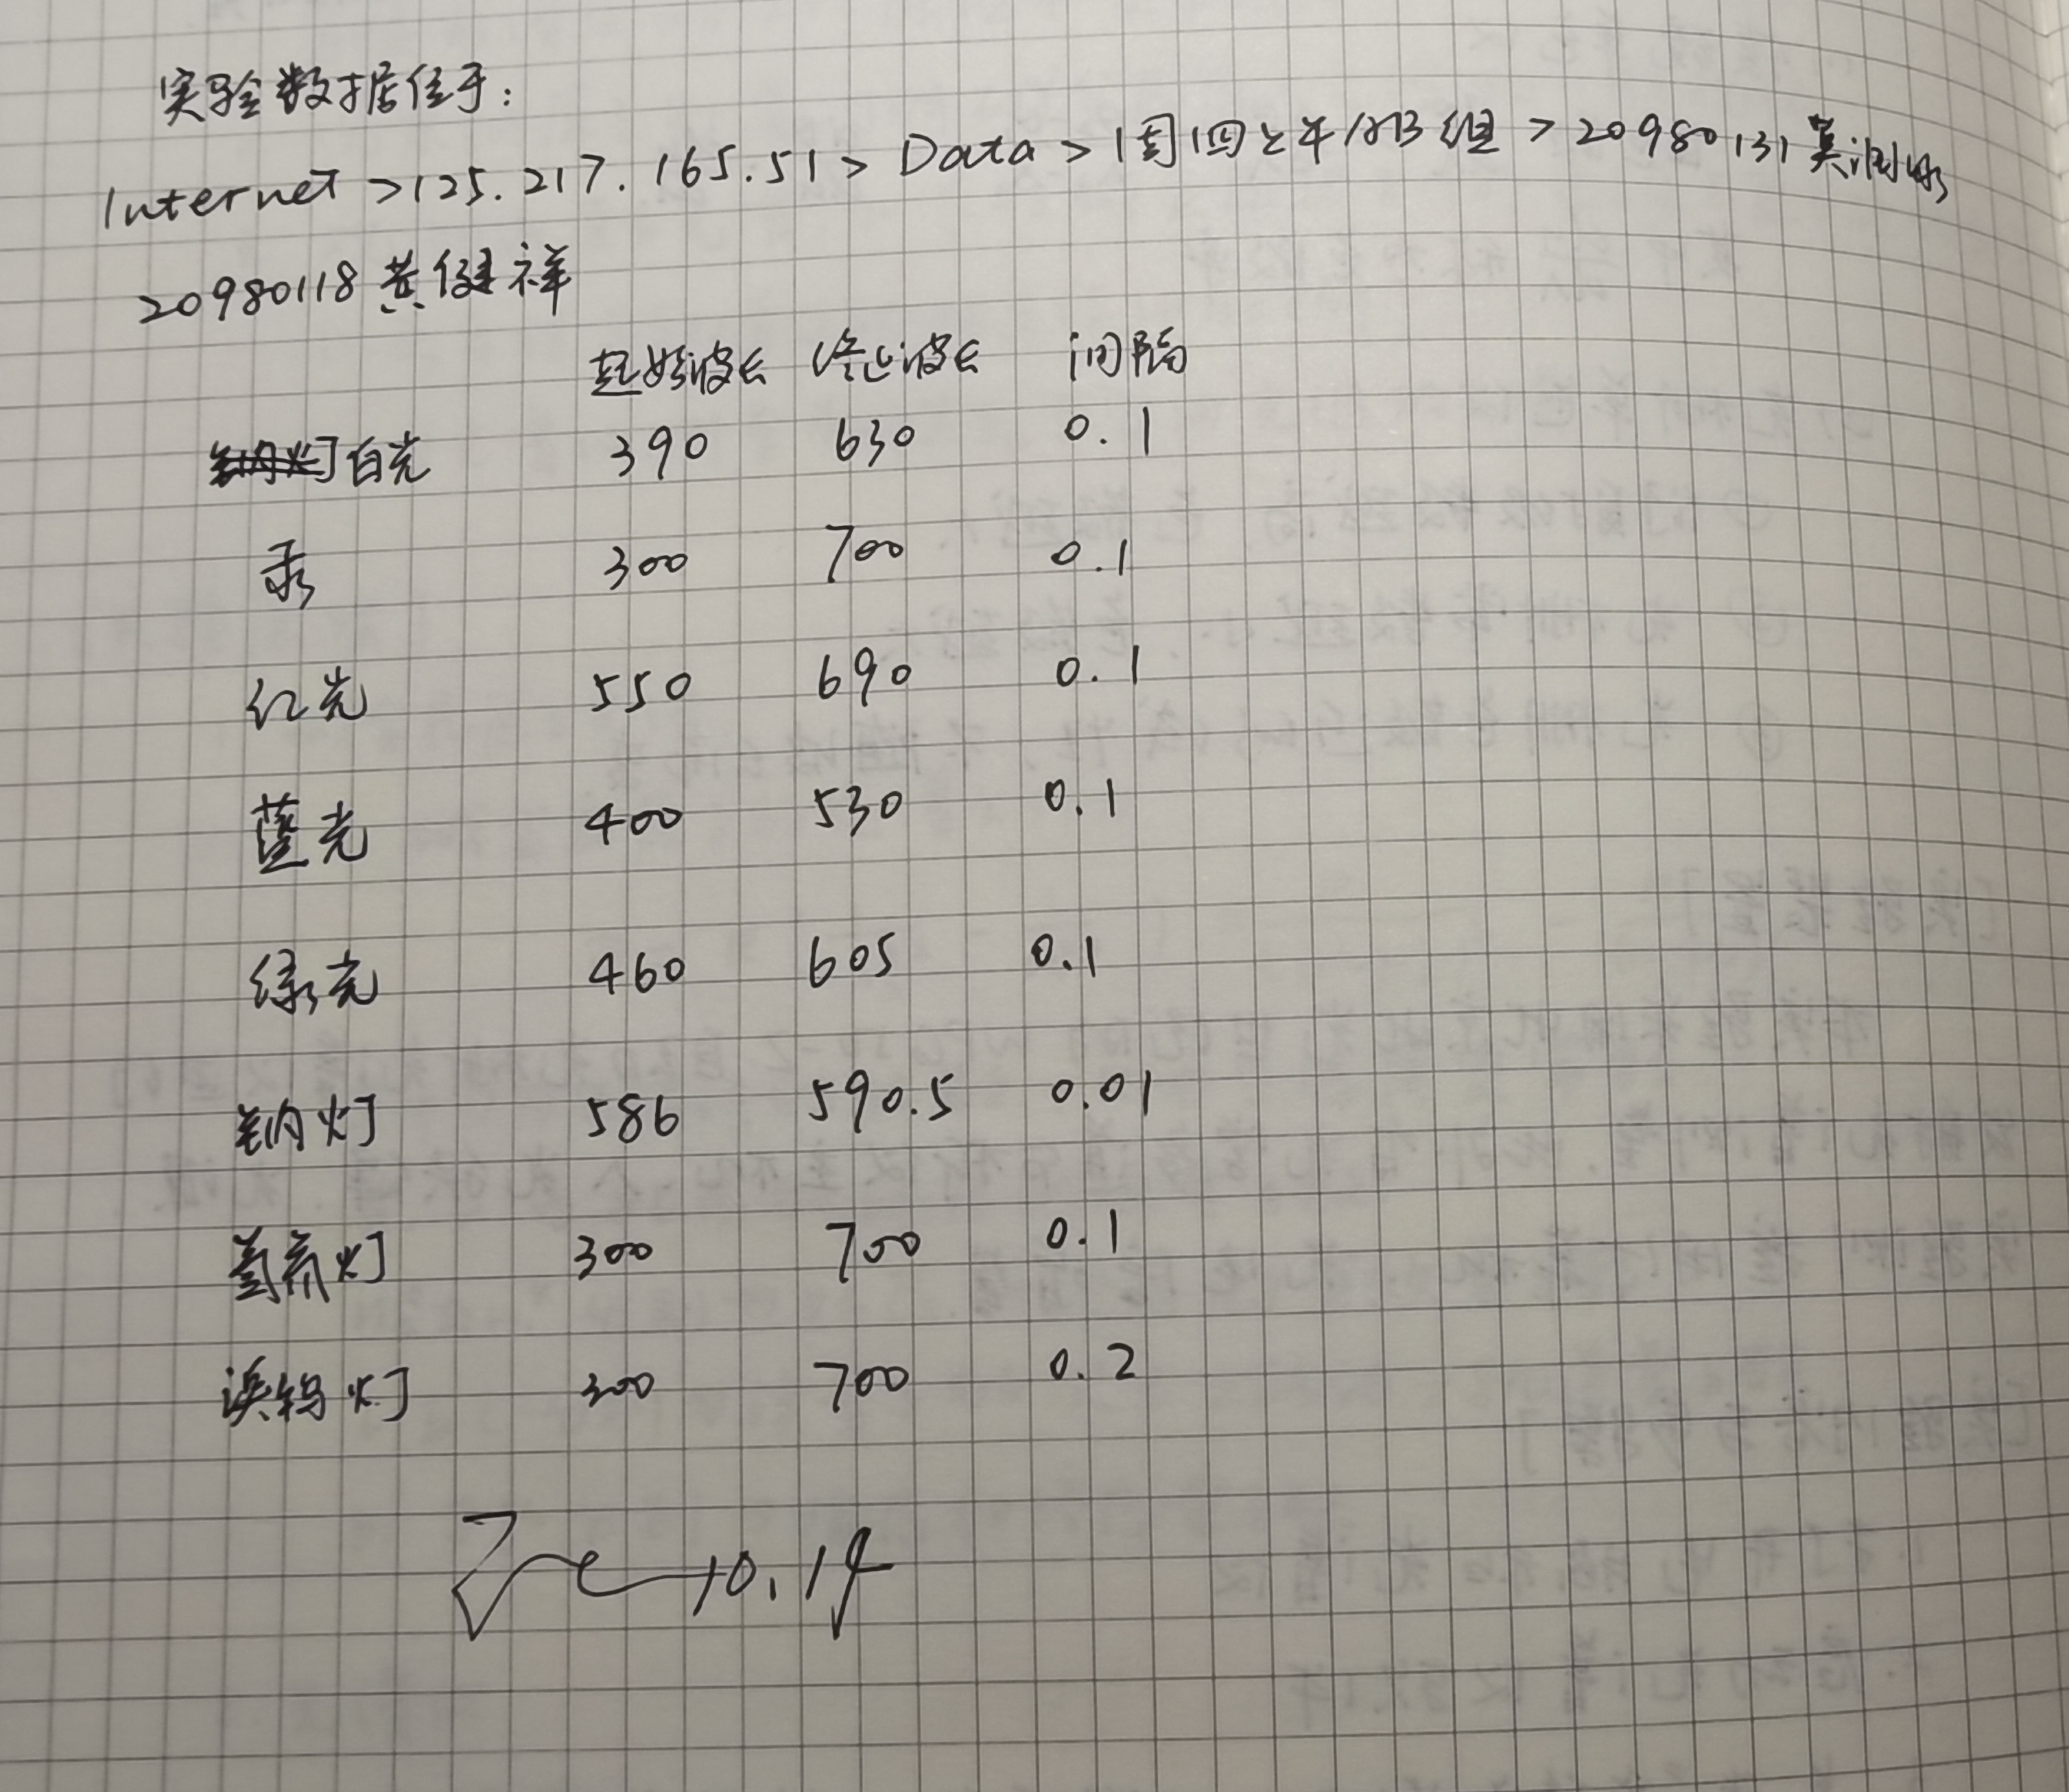 实验数据位于:
Internet > 125.217.165.51 > Data > 1周四上午1对B组 > 20980131莫润冰
20980118 黄健祥
起始波长 终止波长 间隔
白光 390 630 0.1
汞 300 700 0.1
红光 550 690 0.1
蓝光 400 530 0.1
绿光 460 605 0.1
钠灯 586 590.5 0.01
氢氘灯 300 700 0.1
溴钨灯 300 700 0.2
10.14